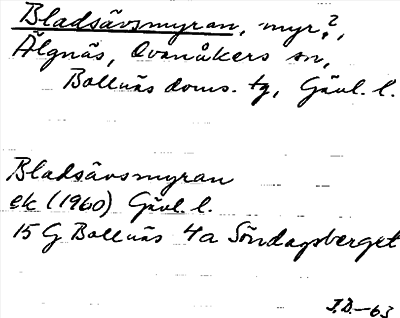 Bladsävsmyran, myr?,
Älgnäs, Ovanåkers sn,
Bollnäs doms. tg, Gävl. l.
Bladsävsmyran
ek (1960) Gävl. l.
15 G Bollnäs 4a Söndagsberget
J.D.-63